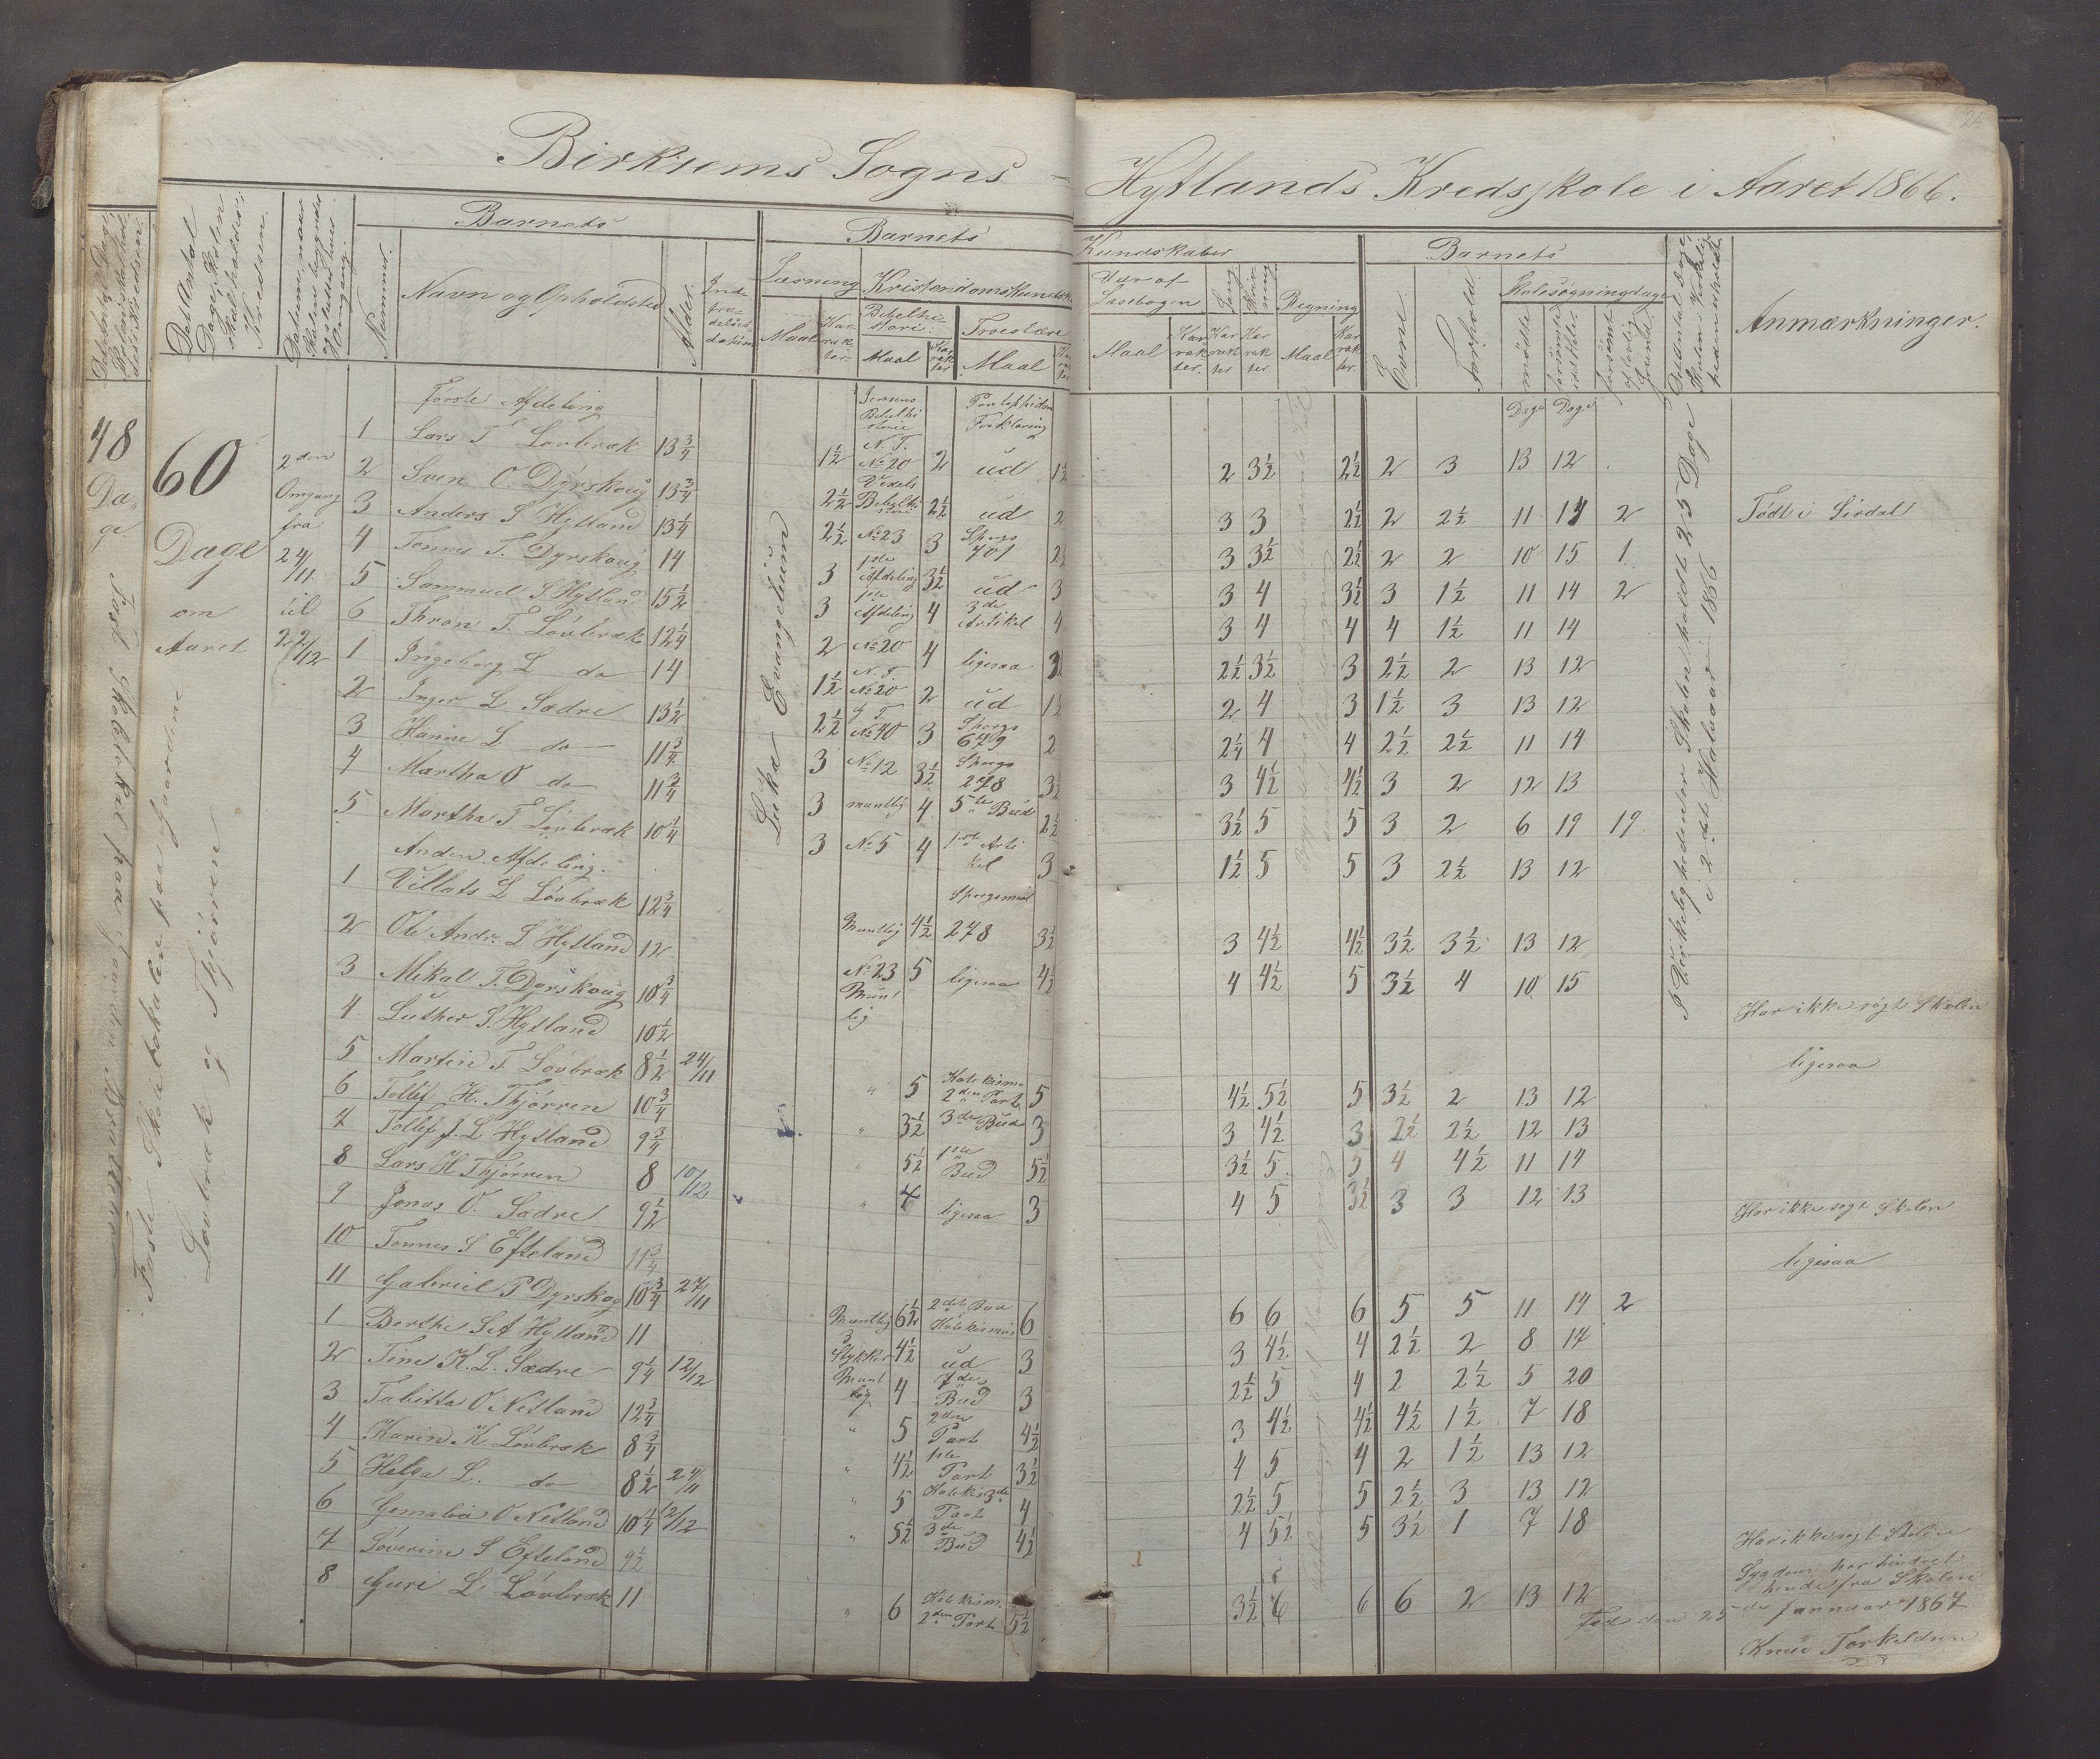 24
Birkrems Sogns – Hytlands Kredsskole i Aaret 1866.
Det Antal Dage, Skolen skal holdes i Kredsen.
Datum, naar Skolen begyndes og sluttes hver Omgang.
Barnets
Nummer.
Navn og Opholdssted
Alder.
Indtrædelsesdatum
Barnets Kundskaber
Læsning
Maal
Karakter.
Kristendomskundsk
Bibelhistorie
Maal
Karakter
Troeslære
Maal
Karakter
Udv. af Læsebogen
Maal
Karakter.
Sang
Karakter
Skrivning
Karakter.
Regning
Maal
Karakter.
Barnets
Evne.
Forhold.
Skolesøgningsdage
mødte
forsømte i det Hele.
forsømt af lovlig Grund.
Det Antal Dage, Skolen i Virkeligheden er holdt
Anmærkninger.
48
Dage
60
Dage
om
Aaret
2den
Omgang
fra
24/11
til
22/12
Fast Skolelokale paa Gaardene
Løvbræk og Thjørren
Luka Evangelium
I Virkeligheden er Skolen holdt 25 Dage
i 2det Halvaar 1866
Første Afdeling
Jensens Bibelhistorie
Pontoppidan Forklaring
Dage Dage
1 Lars T Løvbræk 13 3/4 1 1/2 N. T. No 20 2 ud 1 1/2 2 3 1/2 2 1/2 2 3 13 12
2 Sven O. Dyrskoug 13 3/4 2 1/2 Vexels Bibelhistorie 2 1/2 ud 2 3 3 2 1/2 2 2 1/2 11 14 2 Født i Sirdal
3 Anders S Hytland 13 1/4 2 1/2 No 23 3 Spørgs 701 2 1/2 3 3 1/2 2 1/2 2 2 10 15 1
4 Tønnes T. Dyrskoug 14 3 1ste Afdeling 3 1/2 ud 3 3 4 3 1/2 3 1 1/2 11 14 2
5 Sammuel S Hytland 15 1/2 3 1ste Afdeling 4 3de Artikel 4 3 4 4 4 1 1/2 11 14
6 Thron T. Løvbræk 12 1/4 2 No 20 4 ligesaa 3 2 1/2 3 1/2 3 2 1/2 2 13 12
1 Ingeborg L do 14 1 1/2 N. T. No 20 2 ud 1 1/2 2 4 3 1 1/2 3 13 12
2 Inger L Sædre 13 1/2 2 1/2 G T No 40 3 Spørgs 679 2 2 1/4 4 4 2 1/2 2 1/2 11 14
3 Hanne L do 11 3/4 3 No 12 3 1/2 Spørgs 278 3 1/2 3 4 1/2 4 1/2 3 2 12 13
4 Martha O do 11 3/4 3 mundtlig 4 5te Bud 2 1/2 3 1/2 5 5 3 2 6 19 19
5 Martha T Løvbræk 10 1/4 3 No 5 4 1ste Artikel 3 1 1/2 5 5 3 2 1/2 13 12
Anden Afdeling.
Spørgsmaal
1 Villats L Løvbræk 12 3/4 Mundtlig 4 1/2 278 3 1/2 3 4 1/2 4 1/2 3 1/2 3 1/2 13 12
2 Ole Andr. L Hytland 12 No 23 5 ligesaa 4 1/2 4 4 1/2 5 3 1/2 4 10 15
3 Mikal T. Dyrskoug 10 3/4 Mundtlig Har ikke søgt Skolen
4 Luther S. Hytland 10 1/2 ligesaa
5 Martin T Løvbræk 8 1/2 24/11 " 5 Katekisme 2den Part 5 4 1/2 5 1/2 5 3 1/2 2 13 12
6 Tollef H. Thjørren 10 3/4 " 3 1/2 3de Bud 3 3 4 1/2 3 2 1/2 2 1/2 12 13
7 Tollef J. L Hytland 9 3/4 " 5 1/2 1ste Bud 5 1/2 3 1/2 5 5 4 4 1/2 11 14
8 Lars H Thjørren 8 10/12 " 4 ligesaa 3 4 5 3 1/2 3 3 12 13
9 Jonas O. Sædre 9 1/2 Har ikke søgt Skolen
10 Tønnes S Efteland 11 3/4 ligesaa
11 Gabriel P. Dyrskog 10 3/4 27/11 Mundtlig 6 1/2 2det Bud Katekismus 6 6 6 6 5 5 11 14 2
1 Berthe S A Hytland 11 3 Stykker 4 1/2 ud 3 3 4 1/2 4 2 1/2 2 8 17
2 Tine K. L. Sædre 9 1/4 12/12 Mundtlig 4 7de Bud 3 2 1/2 5 4 2 2 1/2 5 20
3 Tabitta O Netland 12 3/4 " 5 2den Part 4 1/2 3 4 1/2 4 1/2 4 1/2 1 1/2 7 18
4 Karen K. Løvbræk 8 3/4 " 4 1/2 1ste Part 3 1/2 4 5 4 2 1 1/2 13 12
5 Helga L. do 8 1/2 24/11 " 5 Katekis 3de Part 4 2 1/2 5 5 2 1/2 3 13 12
6 Gemalia O Netland 10 1/4 12/12 " 5 1/2 3de Bud 4 1/2 4 5 1/2 5 3 1/2 1 7 18
7 Søverine S Efteland 9 1/2 Har ikke søgt Skolen Sygdom har hindret hende fra Skolen
8 Guri L Løvbræk 11 " 6 Katekism. 2den Part 5 1/2 3 1/2 6 6 6 2 13 12
den 25de Januar 1867
Knud Torkeldsen